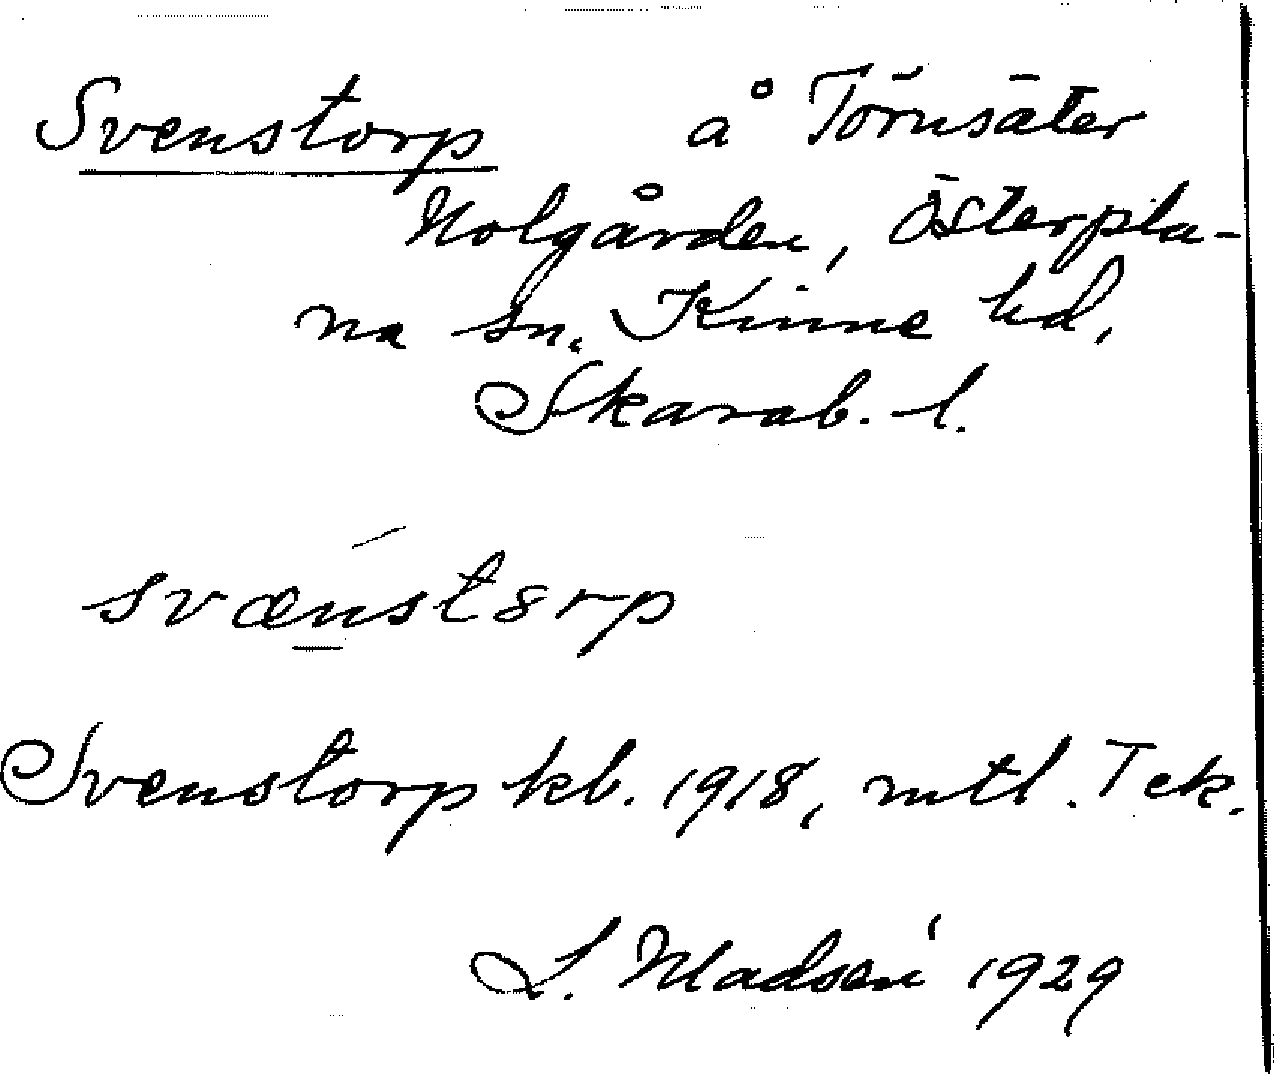 Svenstorp å Törnsäter
Holgården, Österpla-
na sn. Kinne hd,
Skarab. l.
svænstorp
Svenstorp kb. 1918, mtl. Tck.
L. Madsén 1929